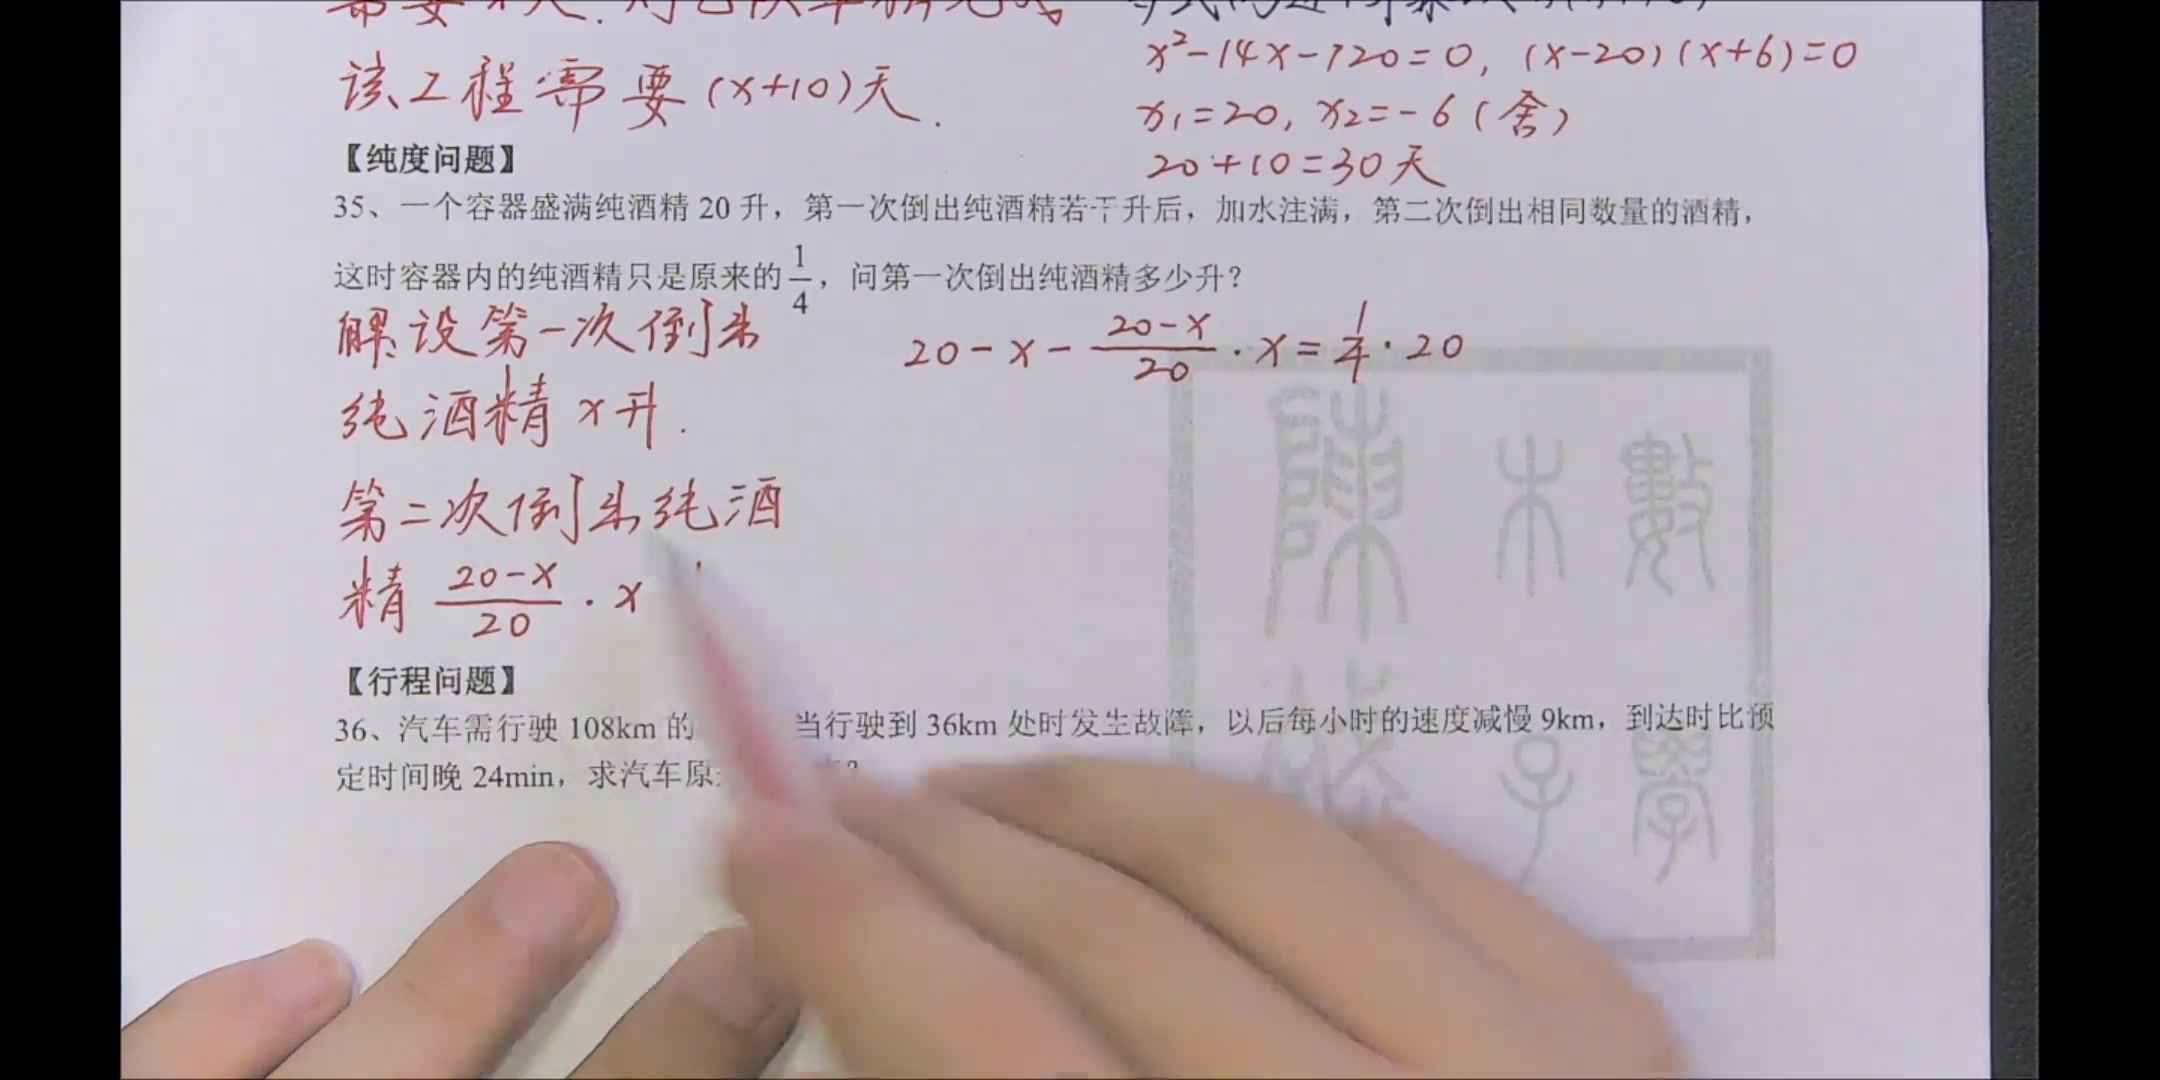 x²-14x-120=0, (x-20)(x+6)=0
该工程需要(x+10)天.
x₁=20, x₂=-6(舍)
20+10=30天
【纯度问题】
35、一个容器盛满纯酒精 20 升，第一次倒出纯酒精若干升后，加水注满，第二次倒出相同数量的酒精，
这时容器内的纯酒精只是原来的 1/4，问第一次倒出纯酒精多少升？
解:设第一次倒出
纯酒精 x 升.
20-x-(20-x)/20·x=1/4·20
第二次倒出纯酒
精 (20-x)/20·x
【行程问题】
36、汽车需行驶 108km 的 当行驶到 36km 处时发生故障，以后每小时的速度减慢 9km，到达时比预
定时间晚 24min，求汽车原
陳 木 數
子 學